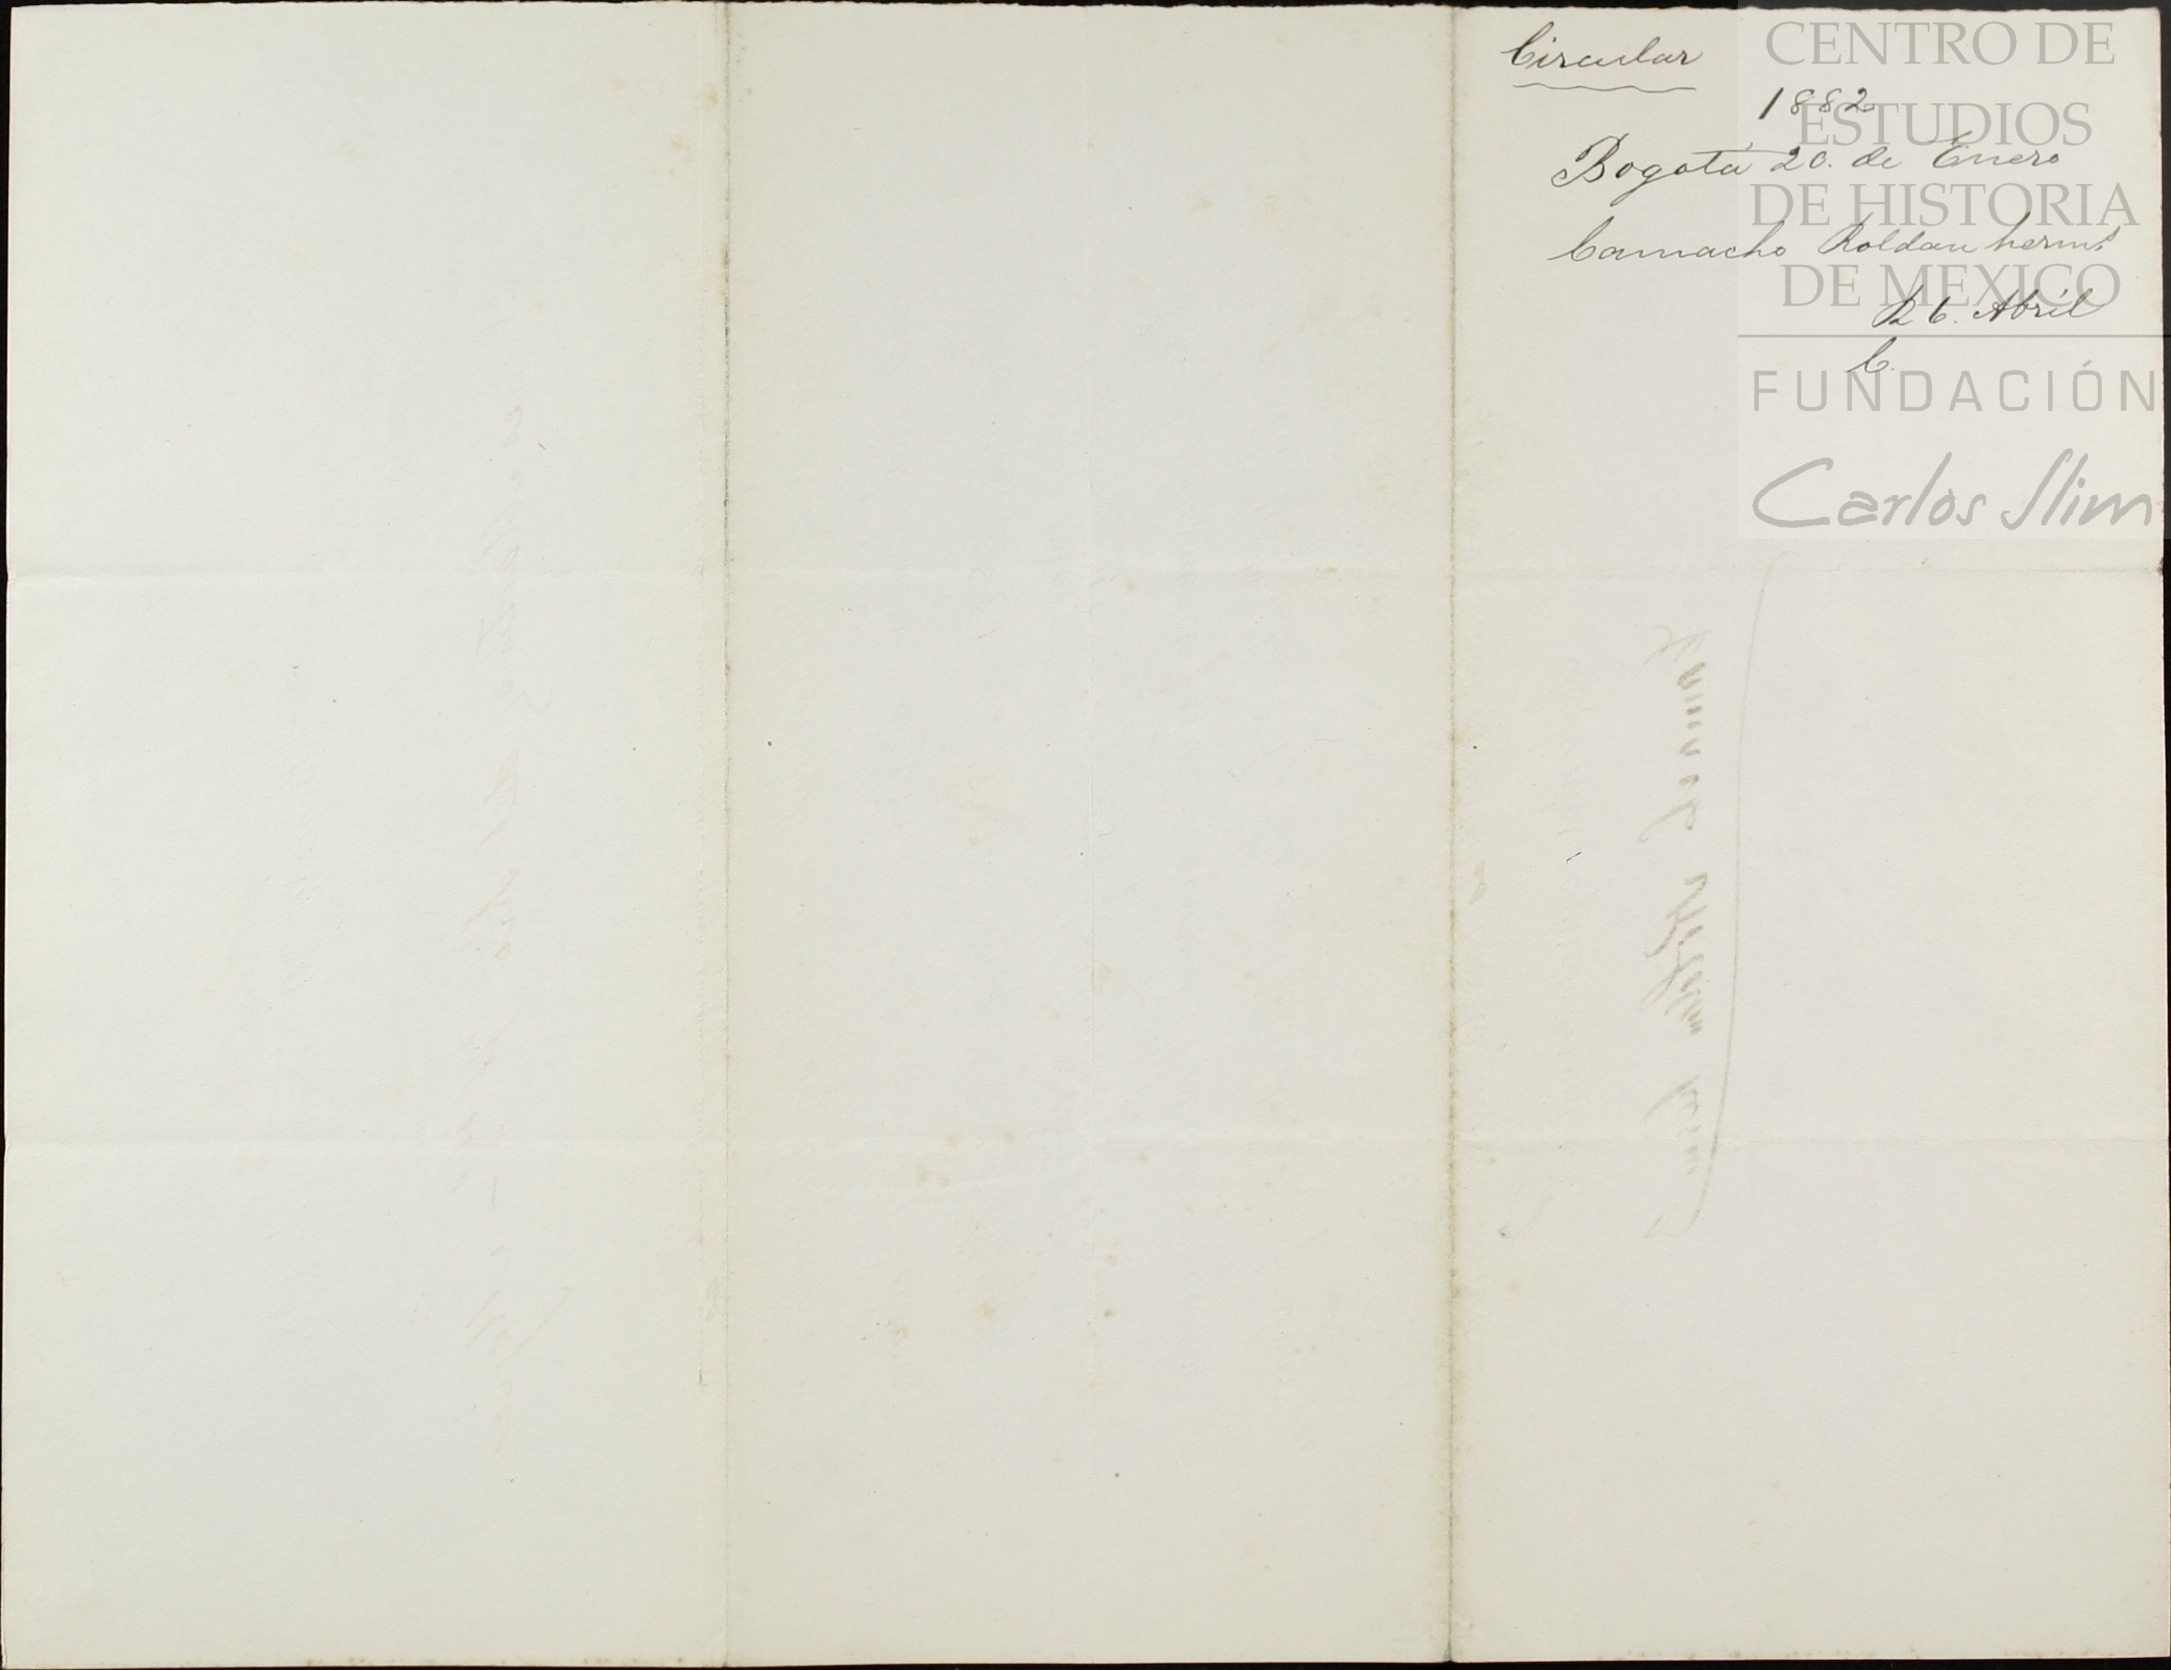 Circular
1882
Bogotá 20. de Enero
Camacho Roldan herms
R 6. Abril
C.
CENTRO DE
ESTUDIOS
DE HISTORIA
DE MEXICO
FUNDACIÓN
Carlos Slim